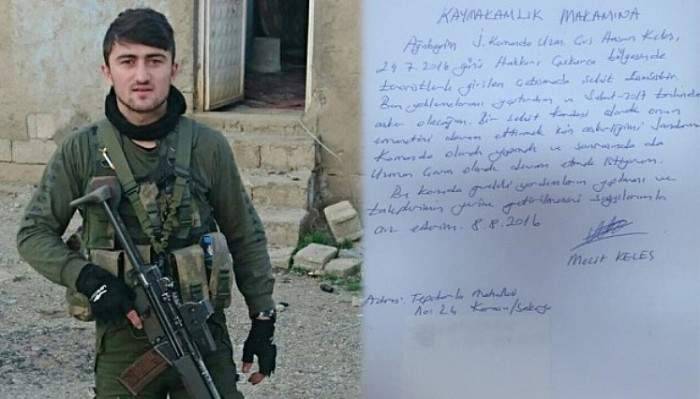 KAYMAKAMLIK MAKAMINA
Ağabeyim J. Komando Uzm. Çvş Keleş,
29.7.2016 günü Hakkari Çukurca bölgesinde
teröristlerle girilen çatışmada şehit olmuştur.
Ben yoklamalarımı yaptırdım ve Şubat-2017 tarihinde
asker olacağım. Bir şehit kardeşi olarak onun
emanetini devam ettirmek için askerliğimi Jandarma
Komando olarak yapmak ve sonrasında da
Uzman Çavuş olarak devam etmek istiyorum.
Bu konuda gerekli yardımların yapılması ve
taleplerimin yerine getirilmesini saygılarımla
arz ederim. 8.8.2016
KELEŞ
Adres: Mahallesi
No: 26